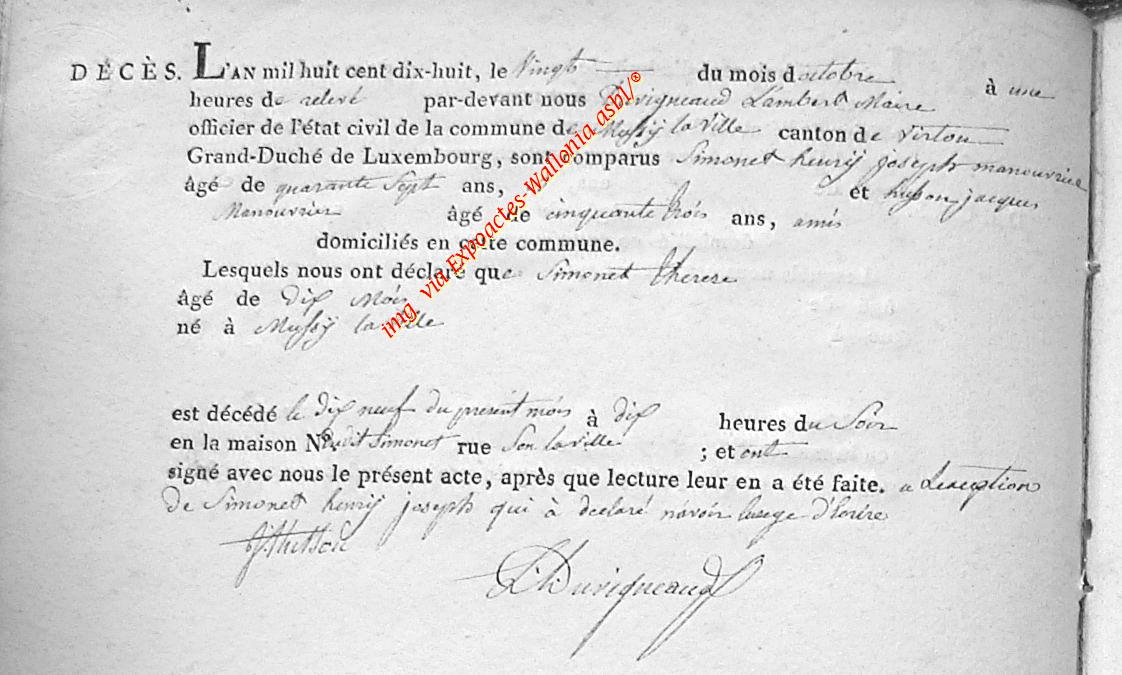 DÉCÈS. L'AN mil huit cent dix-huit, le Vingt du mois doctobre à une
heures de relevé par-devant nous Duvigneaud Lambert Maire
officier de l'état civil de la commune de Mussÿ la Ville canton de Virton
Grand-Duché de Luxembourg, sont comparus Simonet henrÿ joseph manouvrier
âgé de quarante Sept ans, et husson jacques
Manouvrier âgé de cinquante trois ans, amis
domiciliés en cette commune.
Lesquels nous ont déclaré que Simonet therese
âgé de dix Mois
né à Mussÿ la ville
est décédé le dix neuf du présent mois à dix heures du Soir
en la maison No. dudit Simonet rue Son la ville ; et ont
signé avec nous le présent acte, après que lecture leur en a été faite. a Lexception
de Simonet henrÿ joseph qui à déclaré navoir lusage d'Ecrire
J. husson
L: Duvigneaud
img. via Expoactes-Wallonia asbl/®